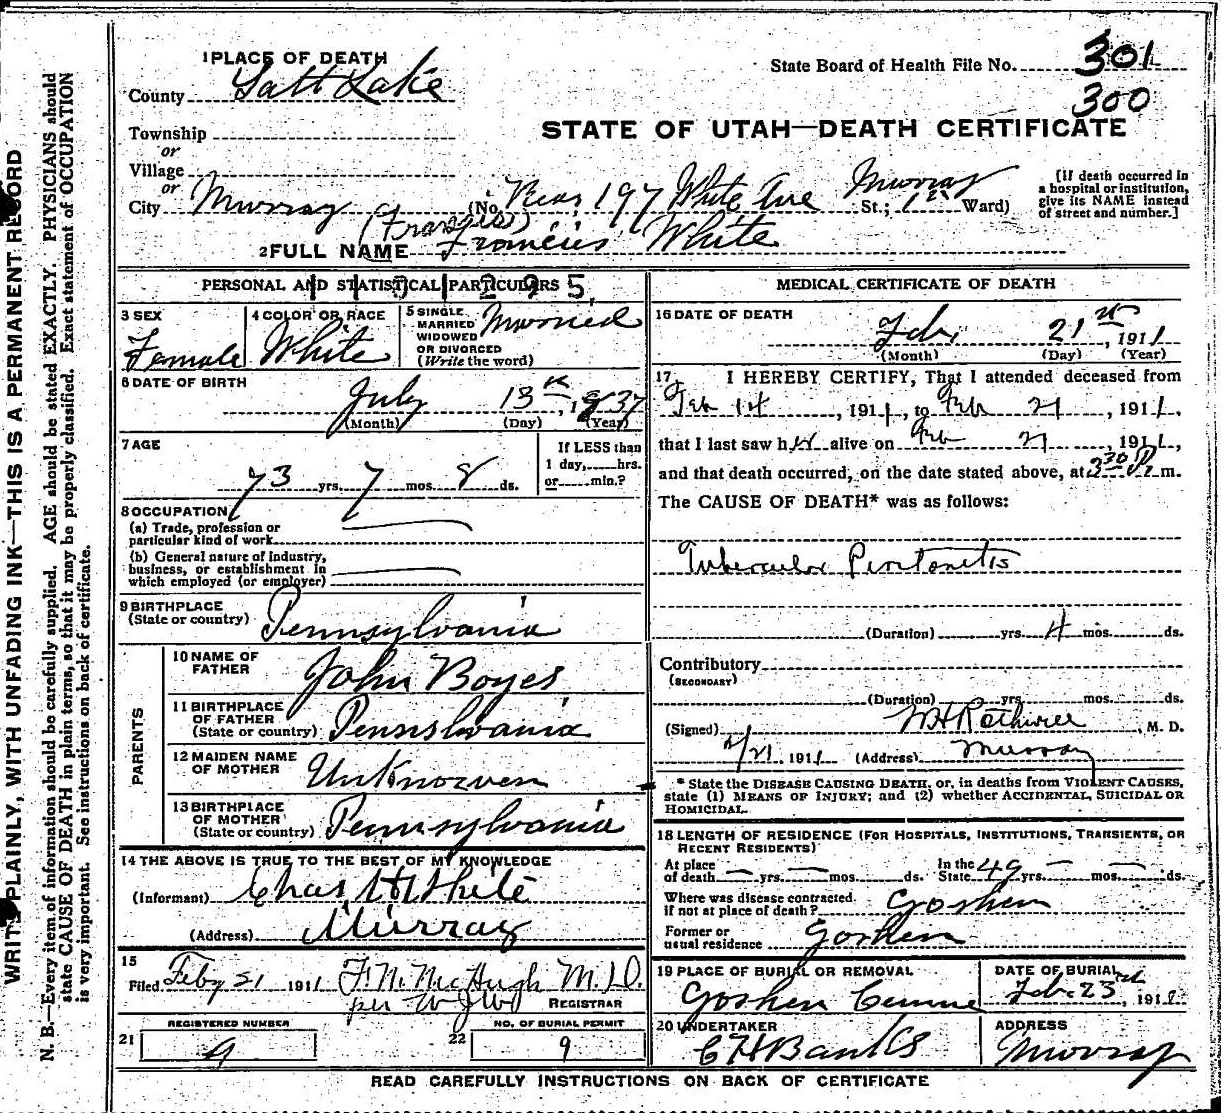 WRITE PLAINLY, WITH UNFADING INK—THIS IS A PERMANENT RECORD
N. B.—Every item of information should be carefully supplied. AGE should be stated EXACTLY. PHYSICIANS should
state CAUSE OF DEATH in plain terms, so that it may be properly classified. Exact statement of OCCUPATION
is very important. See instructions on back of certificate.
1 PLACE OF DEATH
County Salt Lake
State Board of Health File No. 301
300
STATE OF UTAH—DEATH CERTIFICATE
Township
or
Village
or
City Murray (No. Near 197 White Ave Murray St.; 1st Ward)
[If death occurred in
a hospital or institution,
give its NAME instead
of street and number.]
(Frances)
2 FULL NAME Francies White
PERSONAL AND STATISTICAL PARTICULARS
1101295
3 SEX Female
4 COLOR OR RACE White
5 SINGLE
MARRIED
WIDOWED
OR DIVORCED
(Write the word)
Married
6 DATE OF BIRTH
July 13th, 1837
(Month) (Day) (Year)
7 AGE
73 yrs. 7 mos. 8 ds.
If LESS than
1 day, hrs.
or min.?
8 OCCUPATION
(a) Trade, profession or
particular kind of work
(b) General nature of industry,
business, or establishment in
which employed (or employer)
9 BIRTHPLACE
(State or country) Pennsylvania
PARENTS
10 NAME OF
FATHER John Boyes
11 BIRTHPLACE
OF FATHER
(State or country) Pennslvania
12 MAIDEN NAME
OF MOTHER Unknowen
13 BIRTHPLACE
OF MOTHER
(State or country) Pennsylvania
14 THE ABOVE IS TRUE TO THE BEST OF MY KNOWLEDGE
(Informant) Chas H White
(Address) Murray
15
Filed Feby 21 1911 F. N. McHugh M.D.
per WJW REGISTRAR
REGISTERED NUMBER
21 9
NO. OF BURIAL PERMIT
22 9
MEDICAL CERTIFICATE OF DEATH
16 DATE OF DEATH
Feb. 21st, 1911
(Month) (Day) (Year)
17 I HEREBY CERTIFY, That I attended deceased from
Feb 14, 1911, to Feb 21, 1911,
that I last saw her alive on Feb 21, 1911,
and that death occurred, on the date stated above, at 2 30 P m.
The CAUSE OF DEATH* was as follows:
Tubercular Peritonitis
(Duration) yrs. 4 mos. ds.
Contributory
(SECONDARY)
(Duration) yrs. mos. ds.
(Signed) W H Rothwell, M. D.
2/21 1911 (Address) Murray
* State the DISEASE CAUSING DEATH, or, in deaths from VIOLENT CAUSES,
state (1) MEANS OF INJURY; and (2) whether ACCIDENTAL, SUICIDAL OR
HOMICIDAL.
18 LENGTH OF RESIDENCE (FOR HOSPITALS, INSTITUTIONS, TRANSIENTS, OR
RECENT RESIDENTS)
At place
of death — yrs. — mos. ds.
In the
State 49 yrs. — mos. — ds.
Where was disease contracted.
if not at place of death? Goshen
Former or
usual residence Goshen
19 PLACE OF BURIAL OR REMOVAL
Goshen
DATE OF BURIAL
Feb. 23rd, 1911
20 UNDERTAKER
C H Banks
ADDRESS
Murray
READ CAREFULLY INSTRUCTIONS ON BACK OF CERTIFICATE